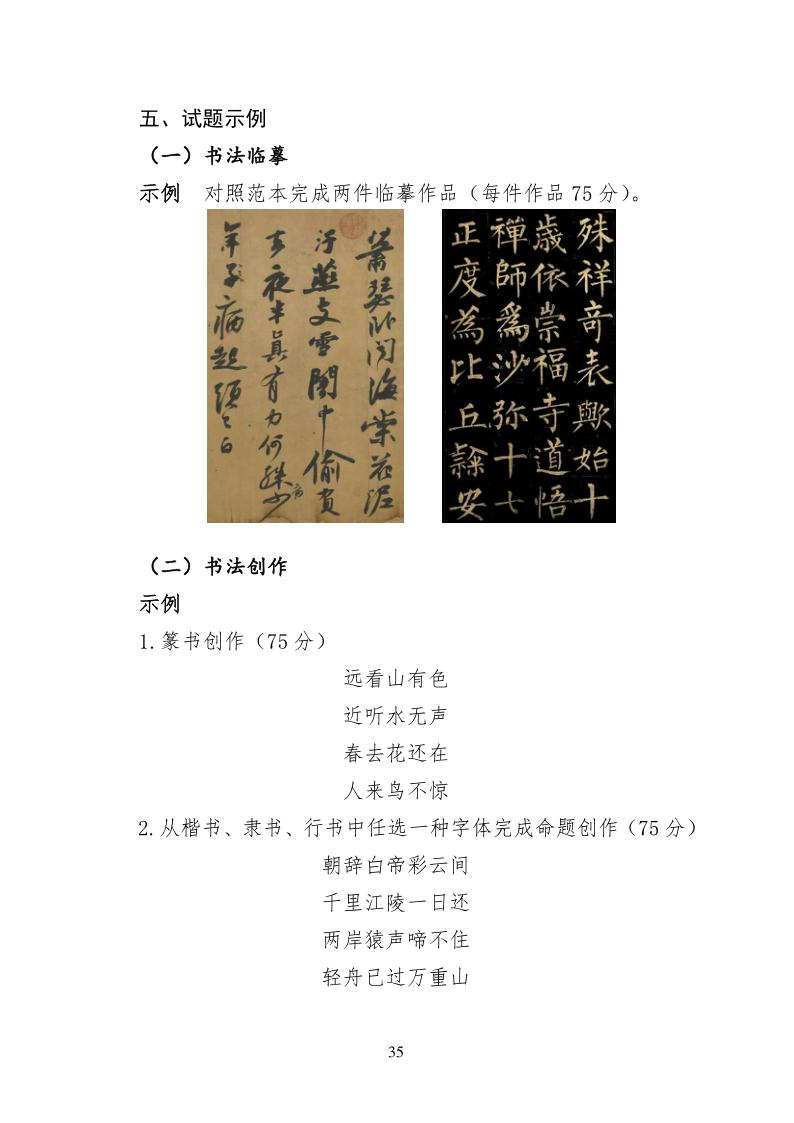 五、试题示例
（一）书法临摹
示例 对照范本完成两件临摹作品（每件作品 75 分）。
蕭瑟卧聞海棠花泥
汙燕支雪闇中偷負
去夜半真有力何殊病少
年子病起頭已白
殊祥竒表歟始十
歲依崇福寺道悟
禪師爲沙弥十七
正度為比丘隸安
（二）书法创作
示例
1.篆书创作（75 分）
远看山有色
近听水无声
春去花还在
人来鸟不惊
2.从楷书、隶书、行书中任选一种字体完成命题创作（75 分）
朝辞白帝彩云间
千里江陵一日还
两岸猿声啼不住
轻舟已过万重山
35